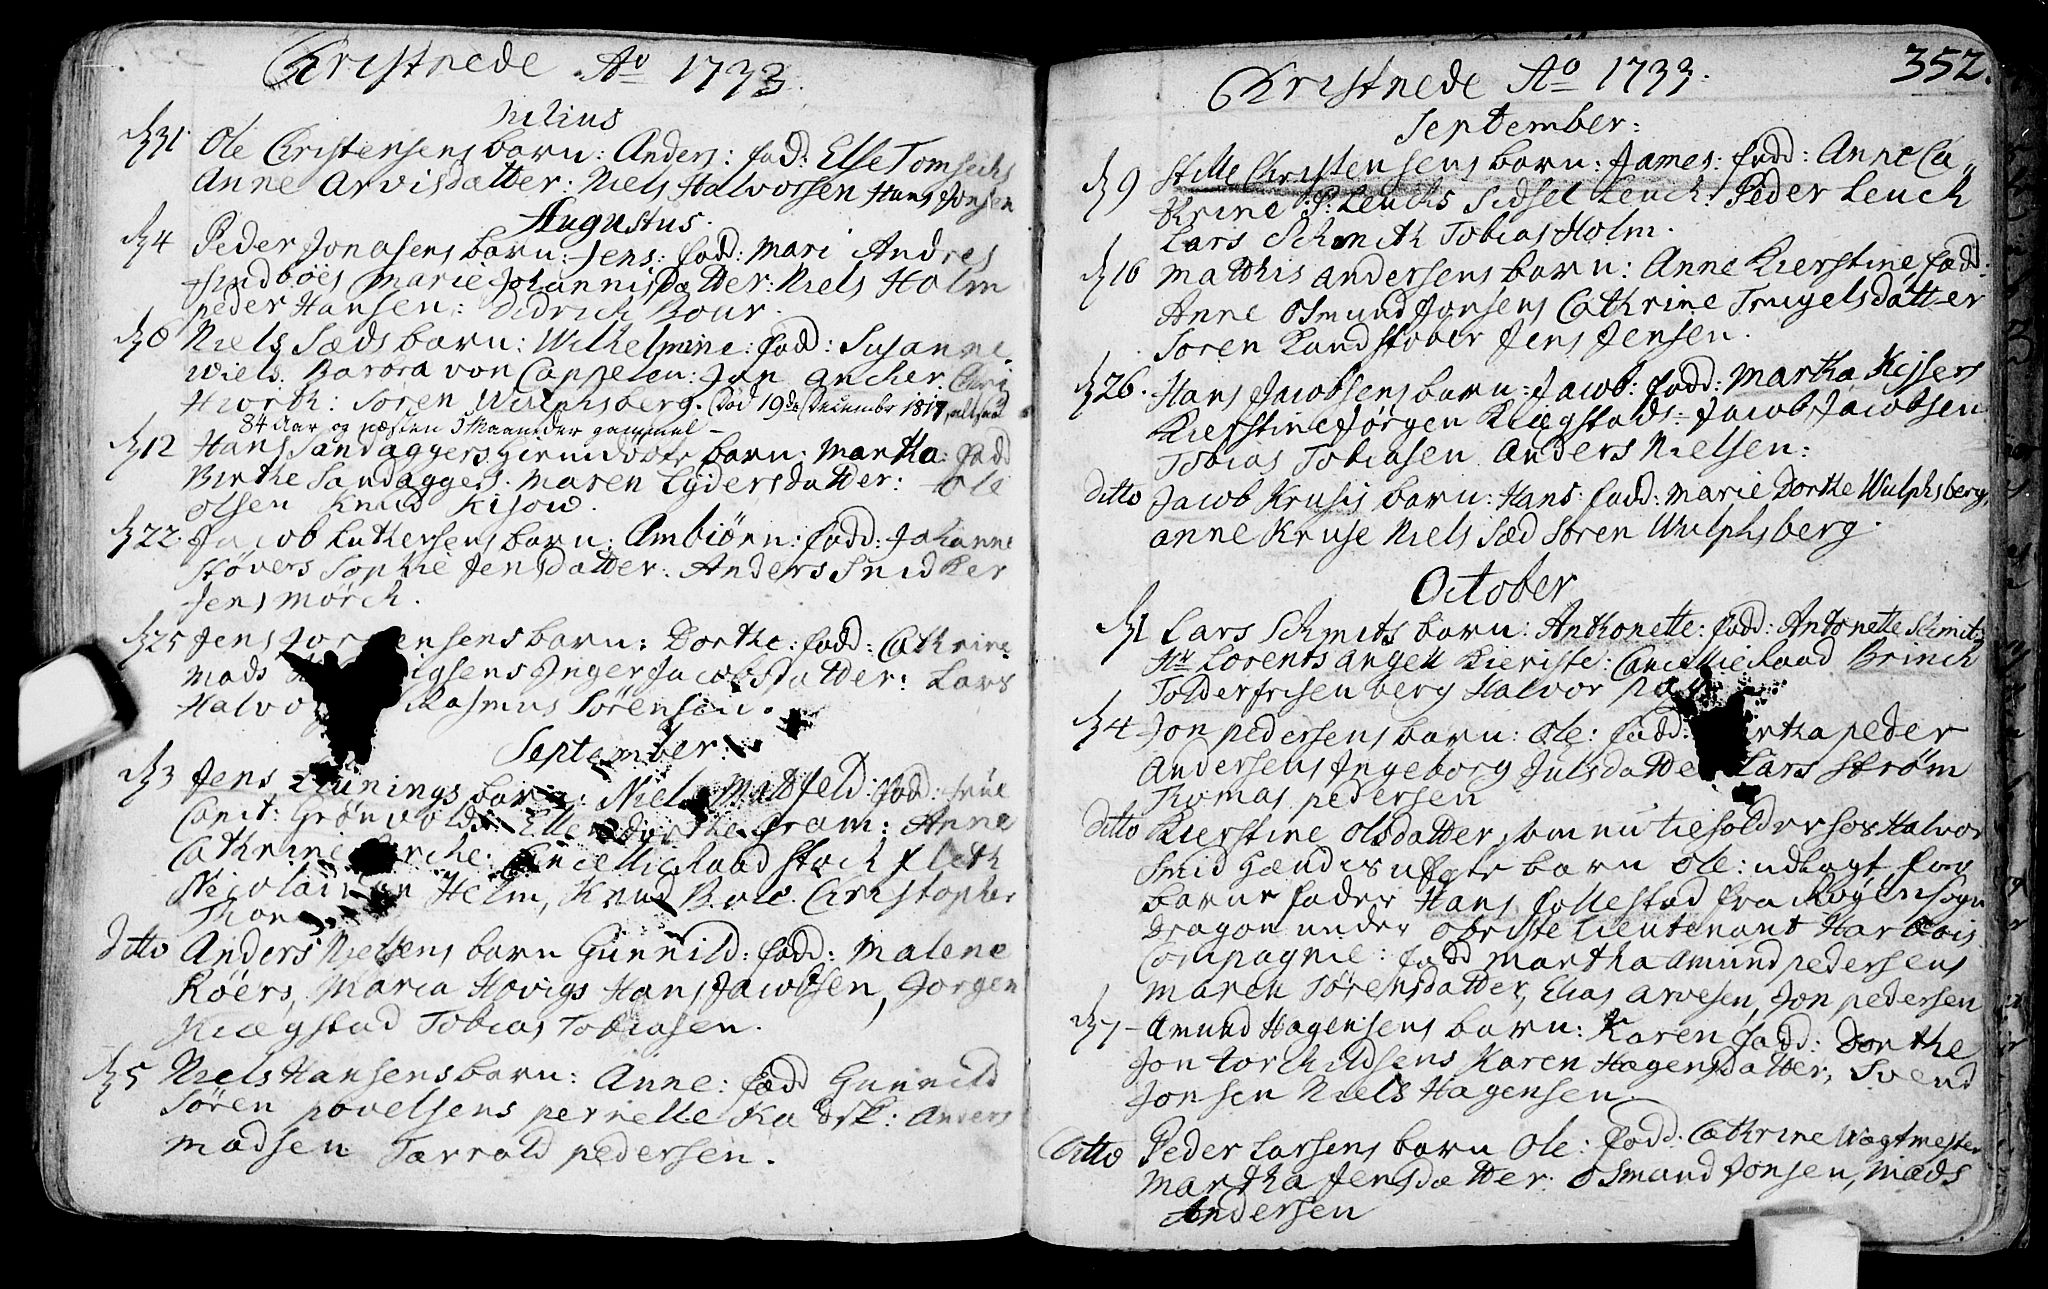 Christnede Ao 1733.
Julius
d 31. Ole Christensens barn: Anders: fad: Else Tomsechs
Anne Arvisdatter: Niels Halvorsen Hans Jonsen
Augustus.
d 4 Peder Jonasens barn: Jens: fadd: Mari Andres
Sundböes Marie Johannisdatter: Niels Holm
peder Hansen: Didrich Bour.
d 8 Niels Sæds barn: Wilhelmine: fadd: Susanne
Wiels. Barbra von Cappelen: Jon Ancher. Chri
Hiorth: Søren Wulphsberg. (død 19de December 1817, altsaa
84 Aar og næsten 5 Maaneder gammel –
d 12 Hans Sandaggers barn: Martha: fadd
Birthe Sandaggers. Maren Eydersdatter: Ole
Olsen Knud Kisow.
d 22. Jacob Luthersens barn: Ambiörn: fadd: Johanne
Støvers Sophie Jensdatter: Anders Snidker
Jens Mörch.
d 25 Jens barn: Dorthe: fadd: Cathrine
Mads Inger Jacobsdatter: Lars
Rasmus Sørensen.
September:
d 3 Jens barn: Niels Matfeld: fadd:
Capit: Grönvolds: Ellen dorthe fram: Anne
Cathrine Cancellie Raad Stockfleth
Nicolai Helm, Knud Christopher
ditto Anders Nielsens barn Gunnild: fadd: Malene
Röers, Maria Hovigs Hans Jacobsen, Jorgen
Kiægstad Tobias Tobiasen.
d 5 Niels Hansens barn: Anne: fadd Gunnild
Sören povelsens pernelle Anders
Madsen Tarrald pedersen.
352.
Christnede Ao 1733.
September:
d 9 Stille Christensens barn: James: fadd: Anne Ca„
thrine P: Leuchs Sidsel Leuch: Peder Leuch
Lars Schmith Tobias Holm.
d 16 Matthis andersens barn: Anne Kierstine fadd:
Anne Osmund Jonsens Cathrine Trugelsdatter
Søren Jens Jensen.
d 26. Hans Jacobsens barn: Jacob: fadd: Martha Kejsers
Kierstine Jörgen Kiægstads: Jacob Jacobsen
Tobias Tobiasen Anders Nielsen:
ditto Jacob Krusis barn: Hans: fadd: Marie Dorthe Wulphsberg,
anne Kruse Niels Sæd Søren Wulphsberg.
October
d 1 Lars Schmits barn: Anthonette: fadd: Antonette Schmit:
Hr Lorents angell Kieriste: Cancellie Raad Brinch
Tolder frisenberg Halvor
d 4 Jon pedersens barn: Ole: fadd: peder
Andersens Ingeborg Julsdatter Lars Strøm
Thomas pedersen
ditto Kierstine Olsdatter, som nu tieholder hos Halvor
Smid Hændes barn Ole: udlagt for
barne fader Hans follestad fra Røgen sogn
Dragon under Obriste Lieutenant
Compagnie: fadd Martha Amund pedersens
Maren Sørensdatter, Elias Arvesen, Jon pedersen
d 7 – Amund Hagensens barn: Karen fadd: Dorthe
Jon Torchildsens Karen Hagensdatter, Svend
Jonsen Niels Hagensen.
Ditto Peder Larsens barn Ole: fadd: Cathrine Wagtmester
Martha Jensdatter. Osmund Jonsen, Mads
Andersen